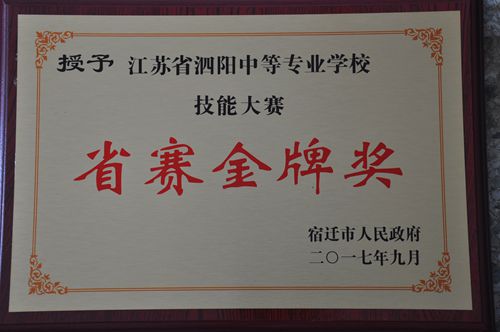 授予 江苏省泗阳中等专业学校
技能大赛
省赛金牌奖
宿迁市人民政府
二〇一七年九月